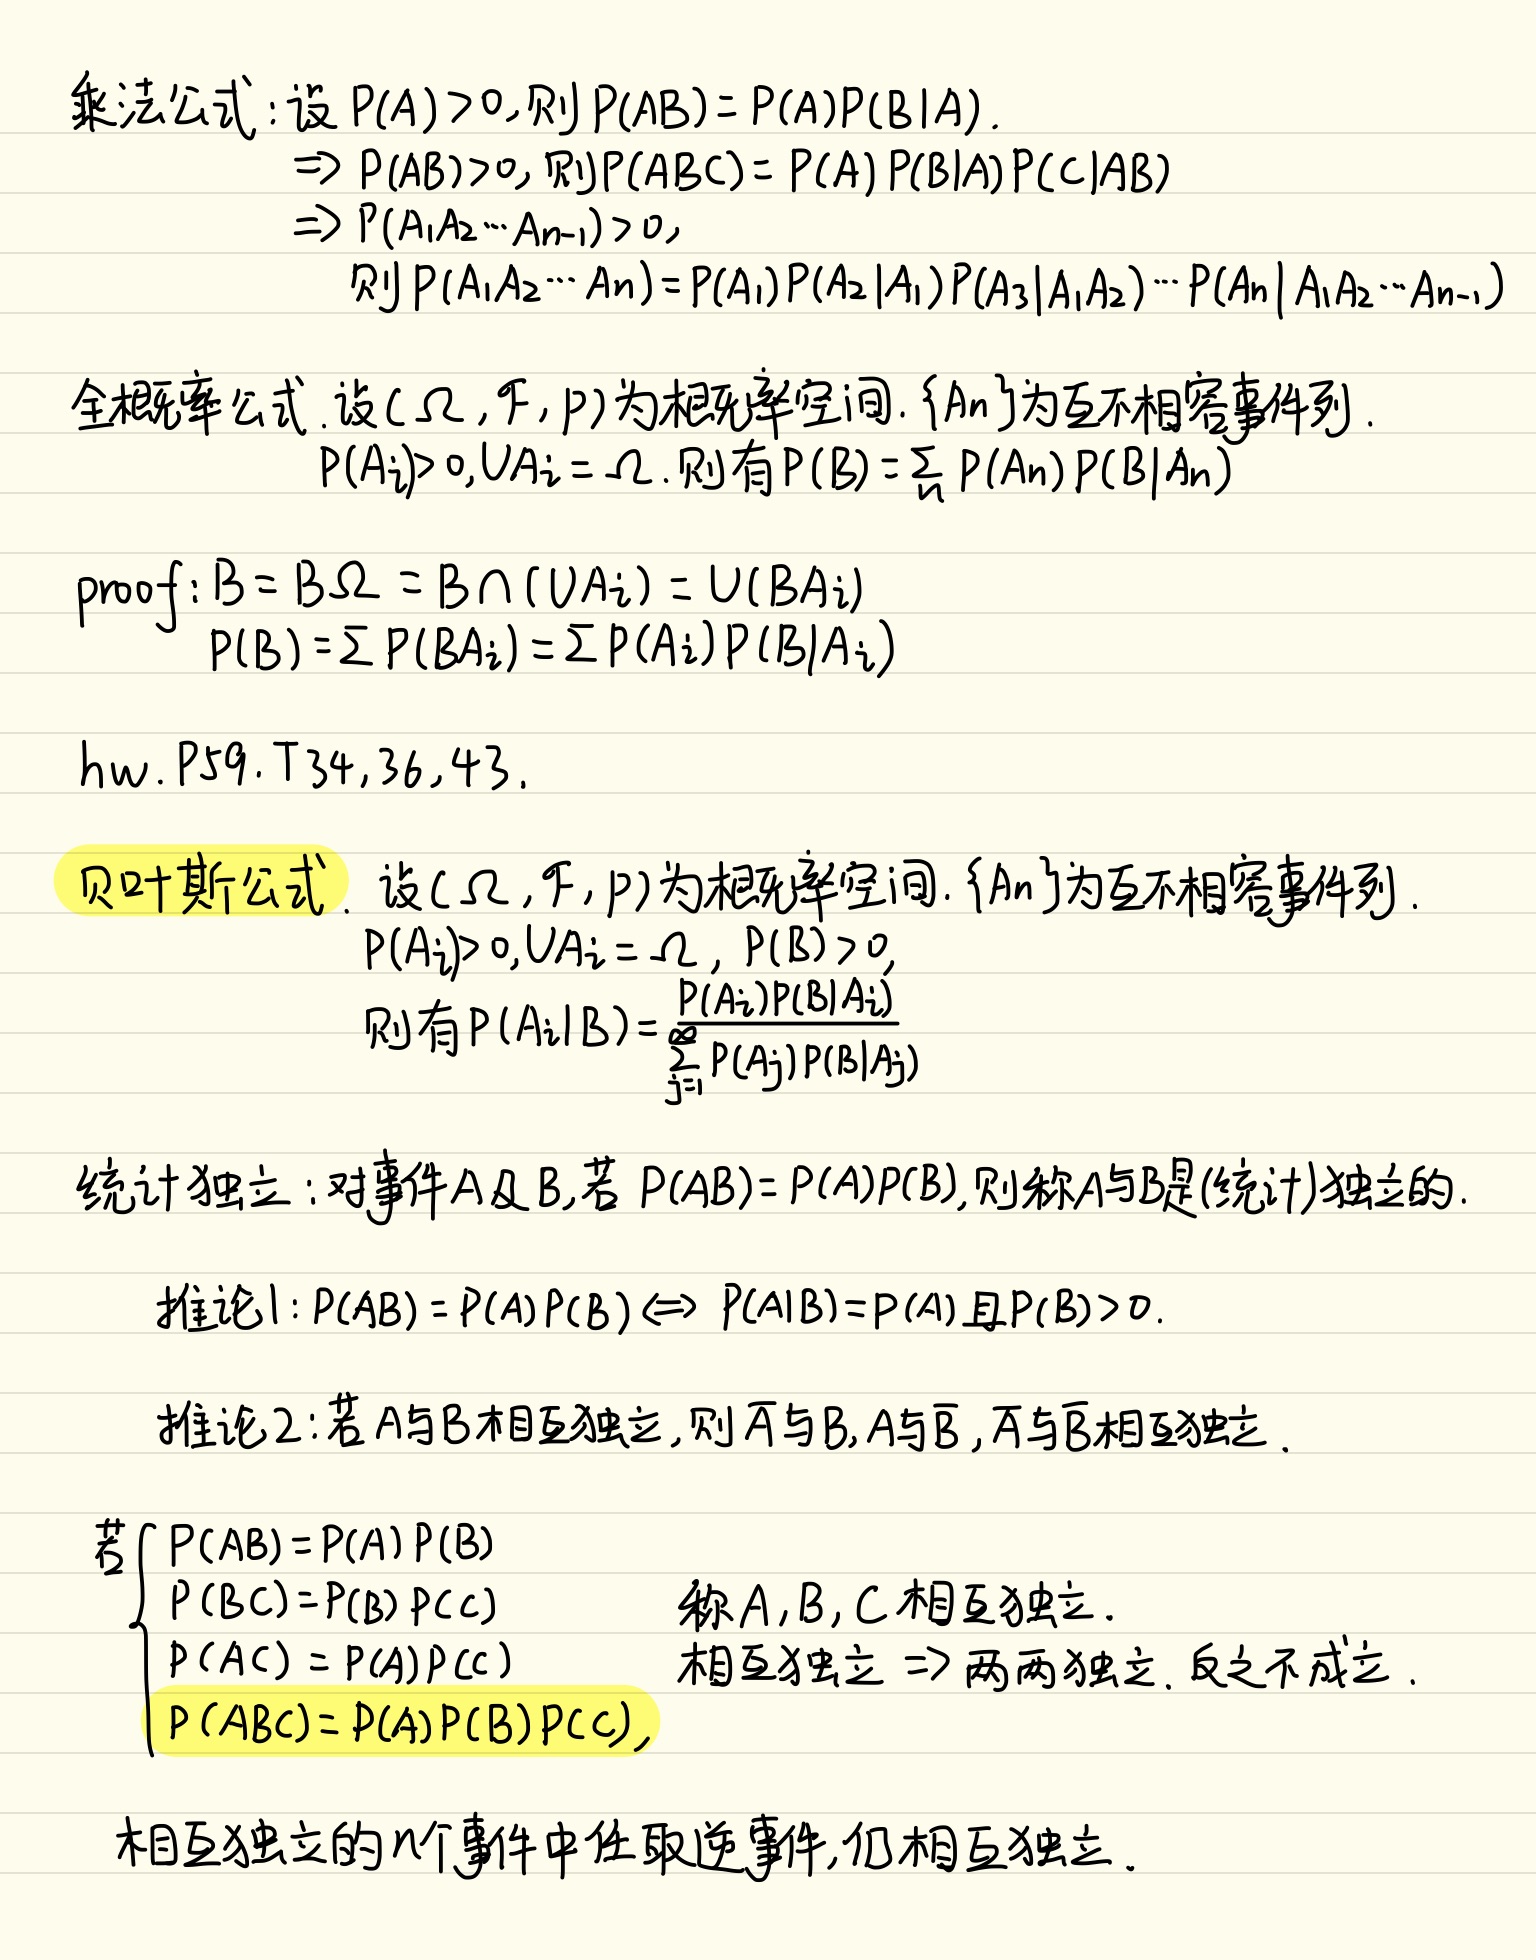 乘法公式:设 P(A)>0,则P(AB)=P(A)P(B|A).
⇒ P(AB)>0,则P(ABC)=P(A)P(B|A)P(C|AB)
⇒ P(A₁A₂⋯Aₙ₋₁)>0,
则P(A₁A₂⋯Aₙ)=P(A₁)P(A₂|A₁)P(A₃|A₁A₂)⋯P(Aₙ|A₁A₂⋯Aₙ₋₁)
全概率公式.设(Ω,ℱ,p)为概率空间.{An}为互不相容事件列.
P(Aᵢ)>0,∪Aᵢ=Ω.则有P(B)=∑ₙ P(An)P(B|An)
proof:B=BΩ=B∩(∪Aᵢ)=∪(BAᵢ)
P(B)=∑P(BAᵢ)=∑P(Aᵢ)P(B|Aᵢ)
hw.P59.T34,36,43.
贝叶斯公式.设(Ω,ℱ,p)为概率空间.{An}为互不相容事件列.
P(Aᵢ)>0,∪Aᵢ=Ω,P(B)>0,
则有P(Aᵢ|B)=\frac{P(Aᵢ)P(B|Aᵢ)}{\sum_{j=1}^{∞}P(Aⱼ)P(B|Aⱼ)}
统计独立:对事件A及B,若P(AB)=P(A)P(B),则称A与B是(统计)独立的.
推论1:P(AB)=P(A)P(B)⇔P(A|B)=P(A)且P(B)>0.
推论2:若A与B相互独立,则A̅与B,A与B̅,A̅与B̅相互独立.
若{P(AB)=P(A)P(B)
P(BC)=P(B)P(C) 称A,B,C相互独立.
P(AC)=P(A)P(C) 相互独立⇒两两独立.反之不成立.
P(ABC)=P(A)P(B)P(C),
相互独立的n个事件中任取逆事件,仍相互独立.